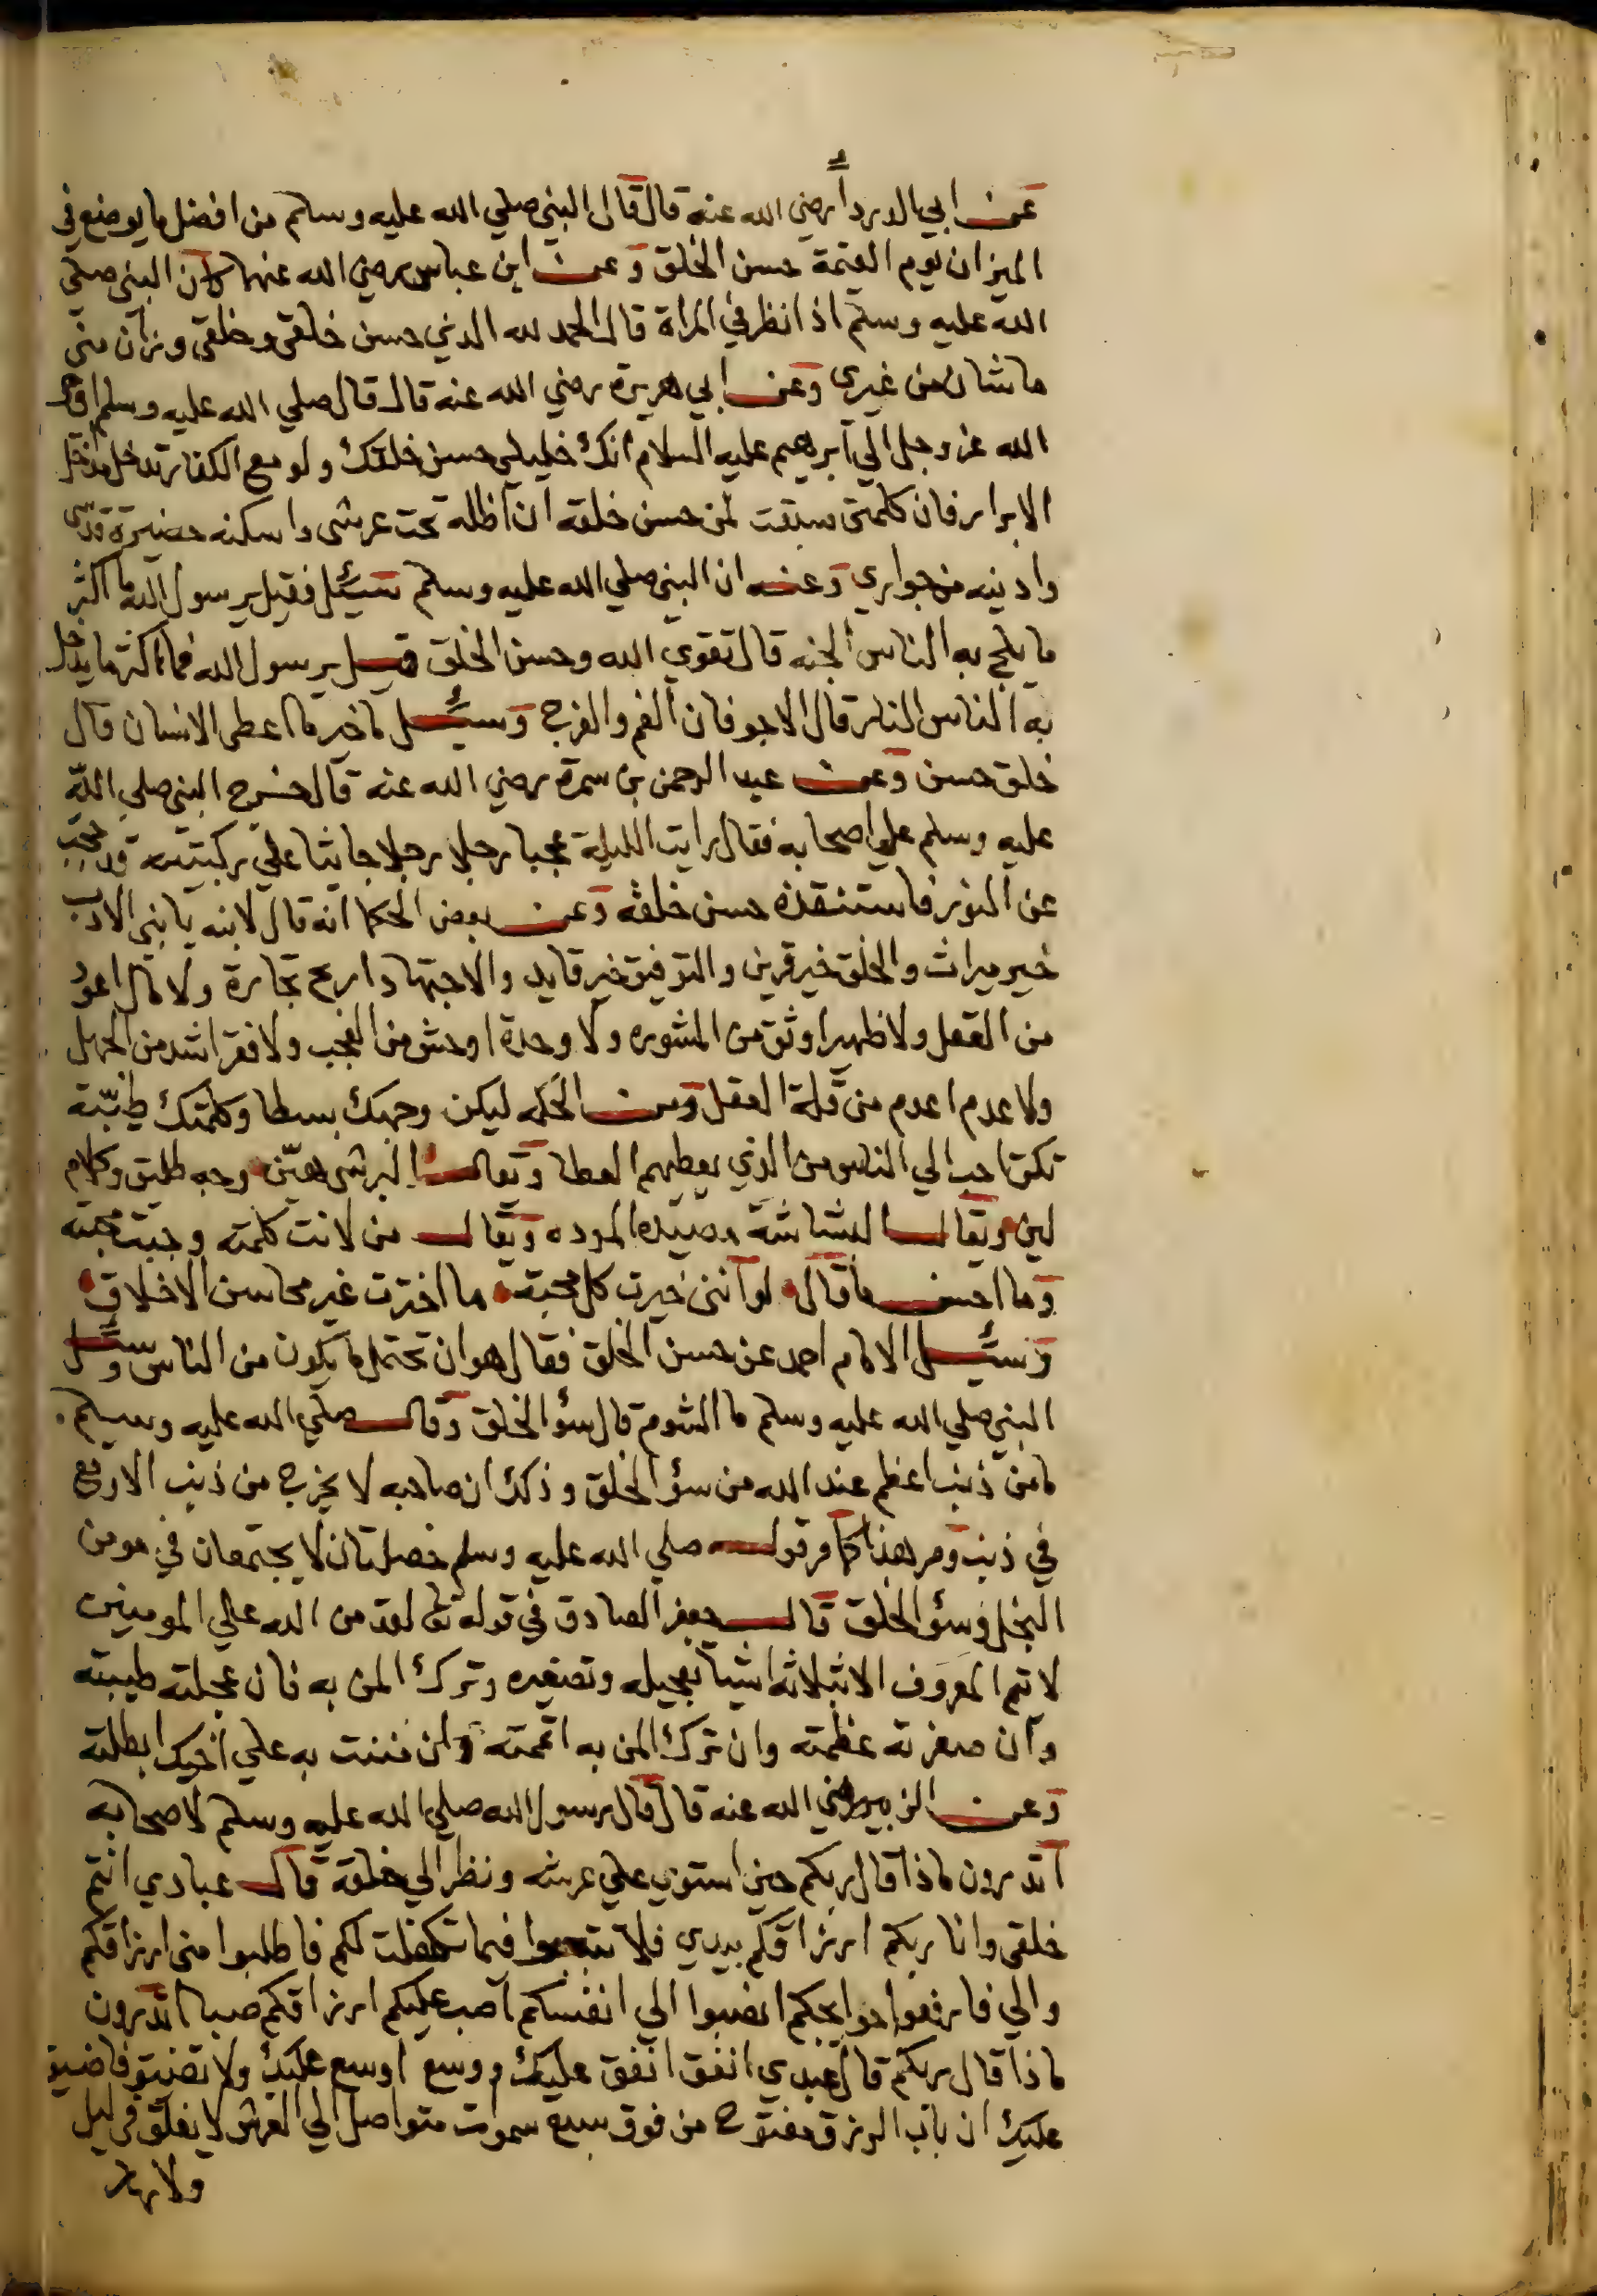 عن ابي الدرداء رضي الله عنه قال قال النبي صلي الله عليه وسلم من افضل ما يوضع في
الميزان يوم القيمة حسن الخلق وعن ابن عباس رضي الله عنهما كان النبي صلي
الله عليه وسلم اذا نظر في المراة قال الحمد لله الذي حسن خلقي وخلقي وزان مني
ما شان من غيري وعن ابي هريرة رضي الله عنه قال قال صلي الله عليه وسلم اوحي
الله عز وجل الي ابرهيم عليه السلام انك خليلي حسن خلقك ولو مع الكفار تدخل مدخل
الابرار فان كلمتي سبقت لمن حسن خلقه ان اظله تحت عرشي واسكنه حضيرة قدسي
وادنيه من جواري وعنه ان النبي صلي الله عليه وسلم سيئل فقيل يرسول الله ما اكثر
ما يلج به الناس الجنه قال تقوي الله وحسن الخلق قيل يرسول الله فما اكثر ما يدخل
به الناس النار قال الاجوفان الفم والفرج وسيئل ما خير ما اعطي الانسان قال
خلق حسن وعن عبد الرحمن بن سمرة رضي الله عنه قال خرج النبي صلي الله
عليه وسلم علي اصحابه فقال رايت الليلة عجبا رجلا رجلا جاثيا علي ركبتيه قد حجب
عن النور فاستنقذه حسن خلقه وعن بعض الحكما انه قال لابنه يا بني الادب
خير ميراث والخلق خير قرين والتوفيق خير قايد والاجتهاد اربح تجارة ولا مال اعود
من العقل ولا ظهير اوثق من المشوره ولا وحدة اوحش من العجب ولا فقر اشد من الجهل
ولا عدم اعدم من قلة العقل ومن الحكمه ليكن وجهك بسطا وكلمتك طيبة
تكن احب الي الناس من الذي يعطيهم العطا ويقال البر شي هين وجه طليق وكلام
لين ويقال البشاشة مصيدة الموده ويقال من لانت كلمته وجبت محبته
وما احسن ما قال لو انني خيرت كل محبة ما اخترت غير محاسن الاخلاق
وسيئل الامام احمد عن حسن الخلق فقال هو ان تحتمل ما يكون من الناس وسئل
النبي صلي الله عليه وسلم ما الشوم قال سؤ الخلق وقال صلي الله عليه وسلم
ما من ذنب اعظم عند الله من سؤ الخلق وذلك ان صاحبه لا يخرج من ذنب الا وقع
في ذنب ومر هذا كما مر قوله صلي الله عليه وسلم خصلتان لا يجتمعان في مومن
البخل وسؤ الخلق قال جعفر الصادق في قوله تعا لقد من الله علي المومنين
لا يتم المعروف الا بثلاثه اشيا تعجيله وتصغيره وترك المن به فان عجلته طيبته
وان صغرته عظمته وان تركت المن به اتممته وان مننت به علي اخيك ابطلته
وعن الزبير رضي الله عنه قال قال رسول الله صلي الله عليه وسلم لاصحابه
اتدرون ماذا قال ربكم حين استوي علي عرشه ونظر الي خلقه قال عبادي انتم
خلقي وانا ربكم ارزاقكم بيدي فلا تتعبوا فيما تكفلت لكم فاطلبوا مني ارزاقكم
والي فارفعوا حوايجكم انصبوا الي انفسكم اصب عليكم ارزاقكم صبا اتدرون
ماذا قال ربكم قال عبدي انفق انفق عليك ووسع اوسع عليك ولا تضيق فاضيق
عليك ان باب الرزق مفتوح من فوق سبع سموات متواصل الي العرش لا يغلق في ليل
ولا نهار